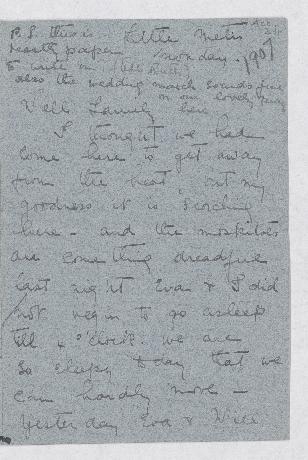 P.S. this is
nasty paper
to write on
Little Metis
Monday.
1907
also the wedding march sounds fine
on our lovely
Well Family here
I thought we had
come here to get away
from the heat, but my
goodness it is scorching
here - and the moskitoes
are something dreadful
last night Eva & I did
not begin to go asleep
till 4 o'clock we are
so sleepy today that we
can hardly move -
Yesterday Eva & Will